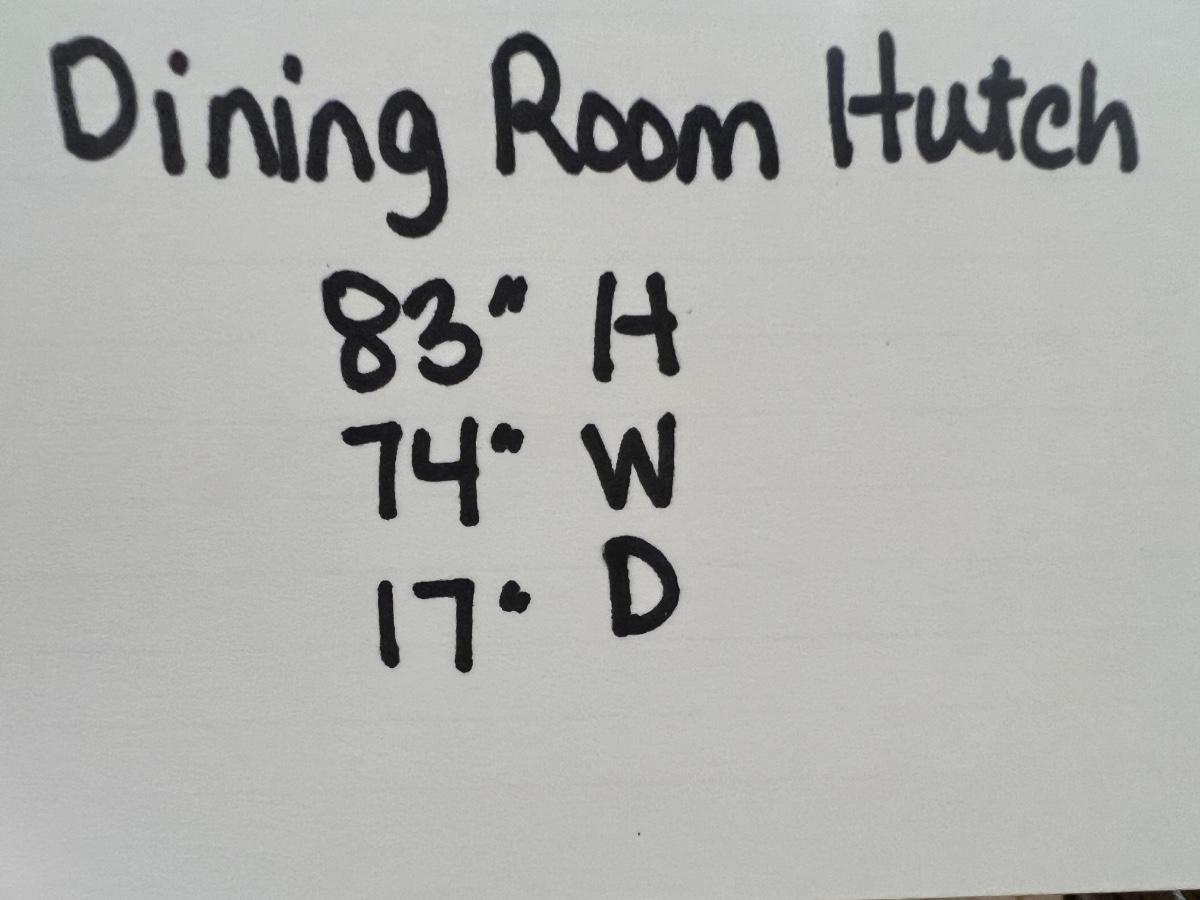 Dining Room Hutch
83" H
74" W
17" D